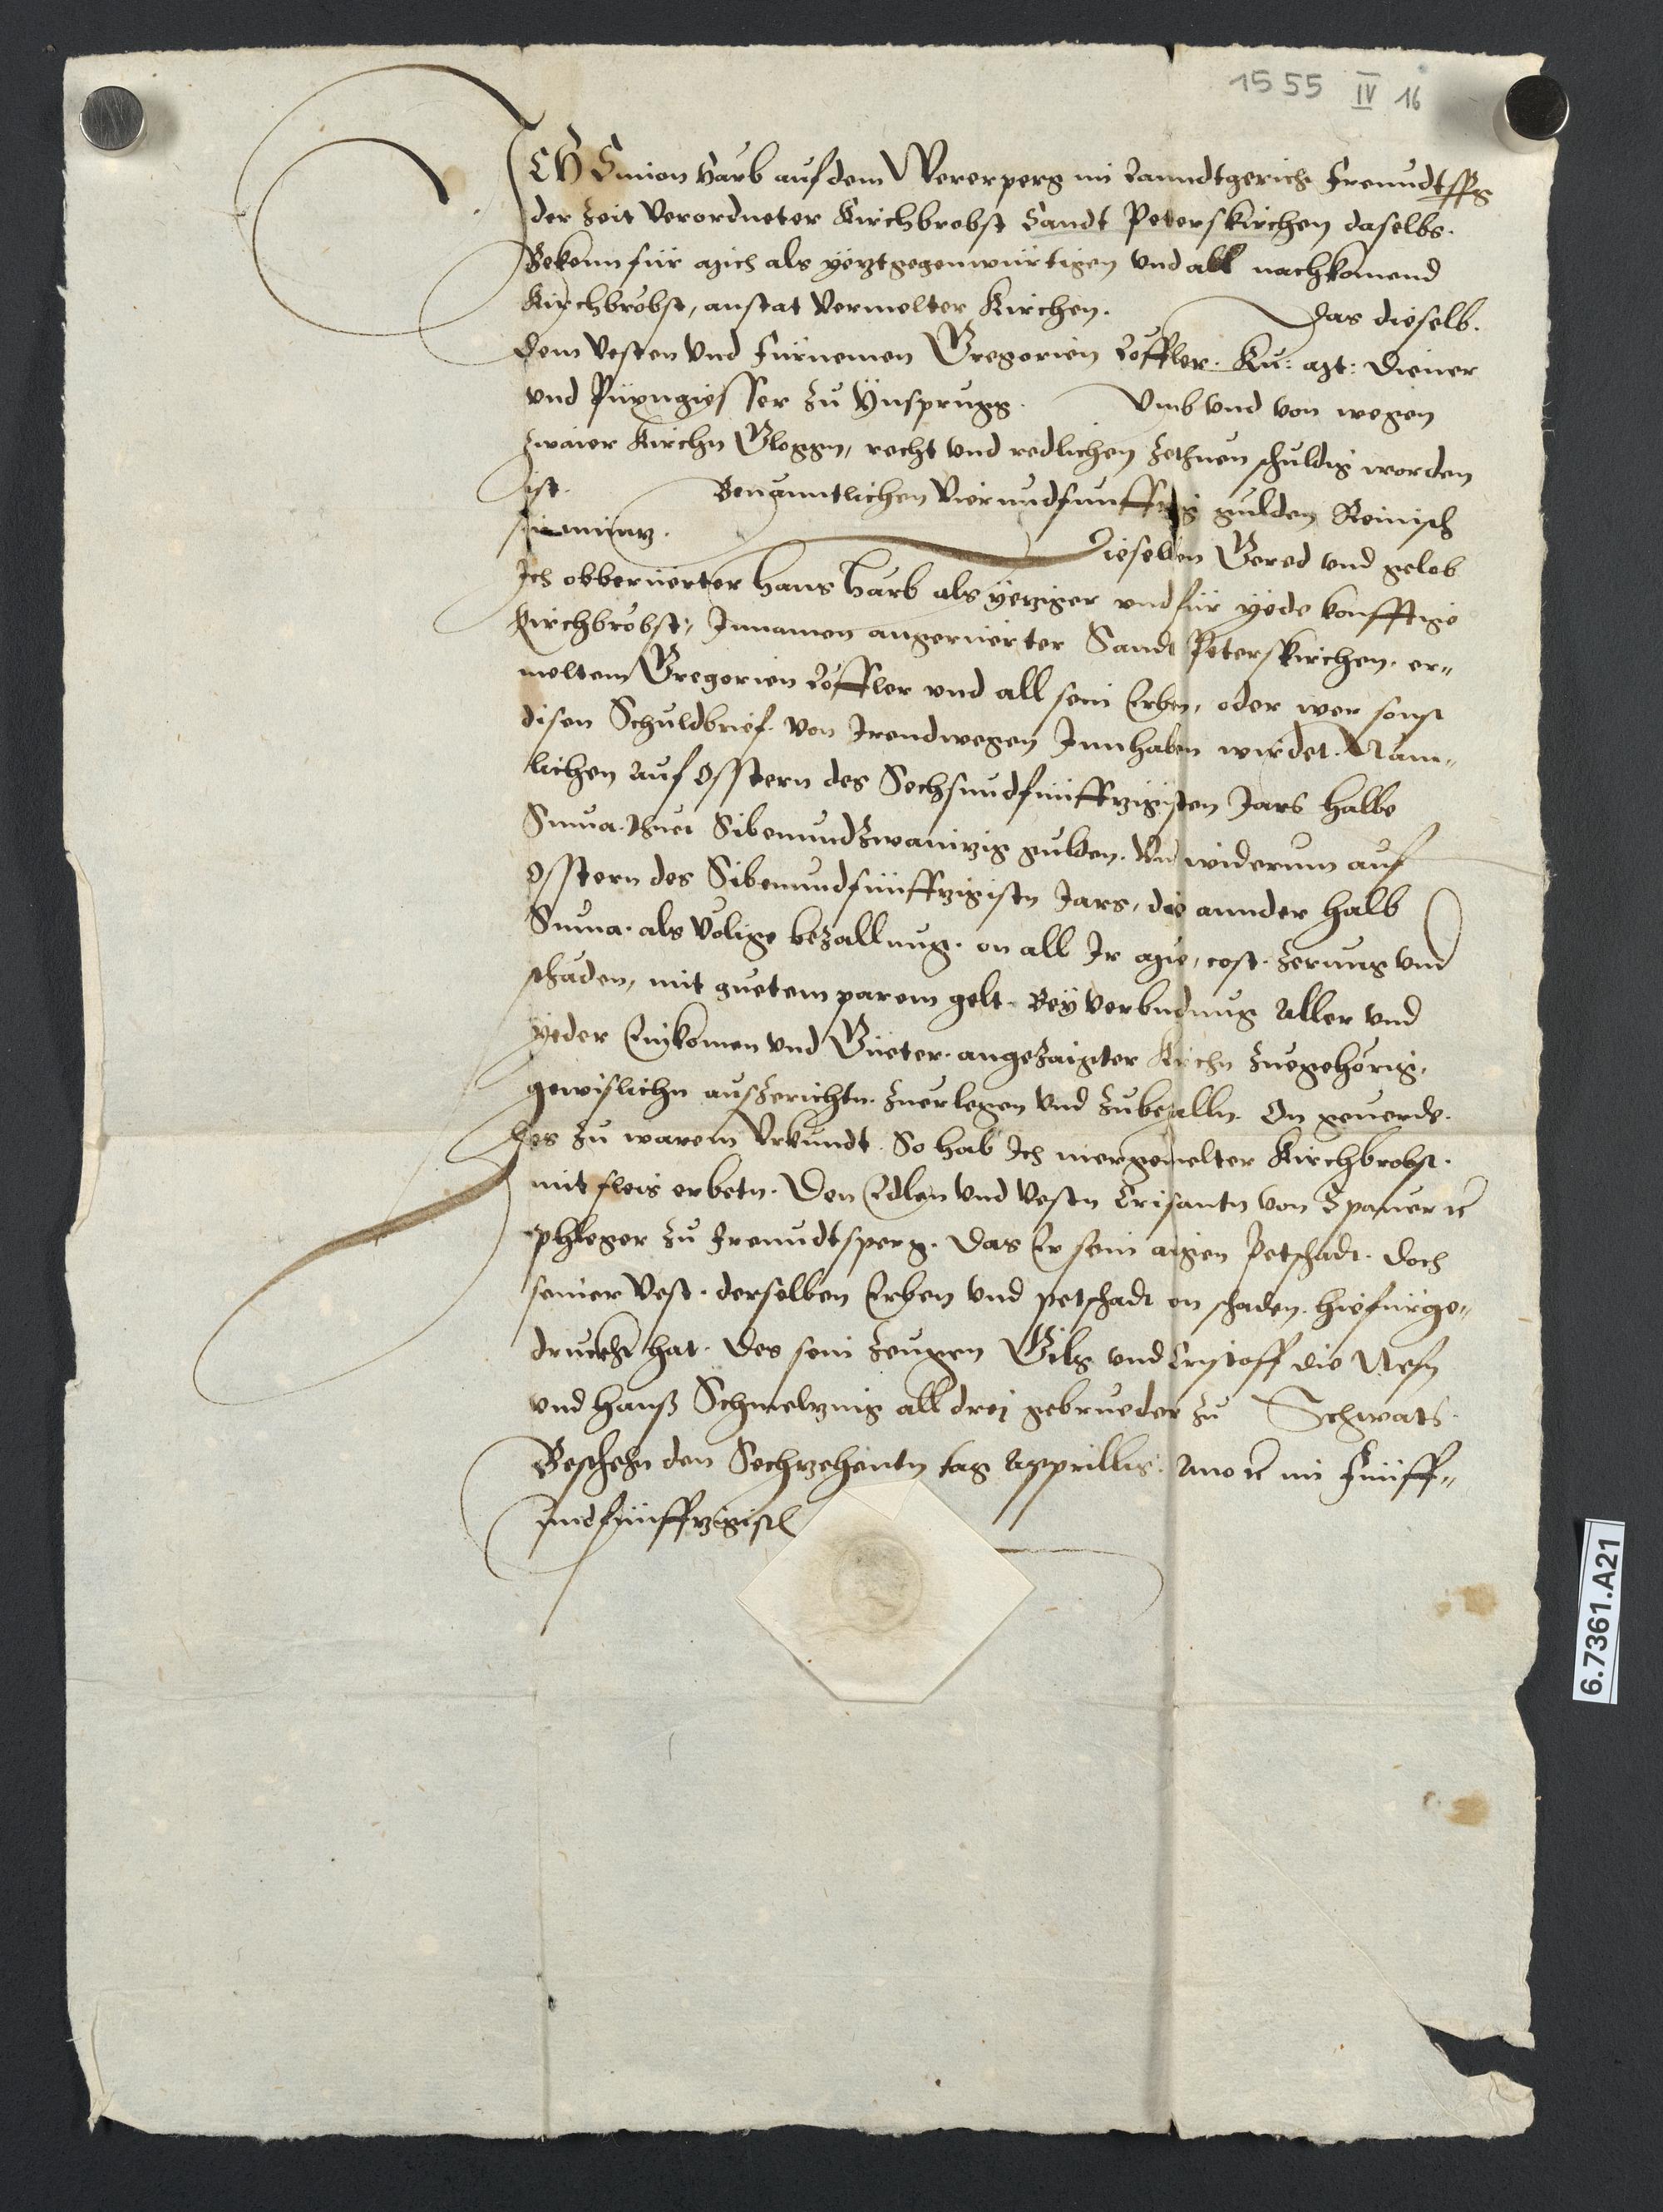 1555 IV 16
ICH Simon Harb auf dem Wererperg im Lanndtgericht Freundtspg
der Zeit Verordneter Kirchbrobst Sandt Peterskirchen daselbs.
Bekenn für mich als yetztgegenwürtigen vnd all nachkomend
Kirchbröbst, anstat Vermelter Kirchen. Das dieselb.
dem Vesten vnd Fürnemen Gregorien Löffler. Kü: Mt: Diener
vnd Püxngiesser zu Ynsprugg. Vmb vnd von wegen
zwaier Kirchn Gloggn, recht vnd redlichen zethuen schuldig worden
ist. Benanntlichen Vierundfunfftzig gulden Reinisch
in müntz. Dieselben Gered vnd gelob
Ich obberüerter Hans Harb als yetziger vnd für yede konfftige
Kirchbröbst, Innamen angerüerter Sandt Peterskirchen. er„
meltem Gregorien Löffler vnd all sein Erben, oder wer sonst
disen Schuldbrief von Irendwegen Innhaben wirdet. Nam„
lichen auf Osstern des Sechsundfünfftzigisten Jars halbe
Suma. Thuet Sibenundzwaintzig gulden. Vnd widerumb auf
Osstern des Sibenundfünfftzigistn Jars, die annder halb
Suma. als Völige bezallung. on all Ir müe, cost. zerung vnd
schaden, mit guetem parem gelt. Bey verbindung Aller vnd
yeder Einkomen vnd Güeter. angezaigter Kirchn zuegehörig,
gewislichn auszerichtn. zuerlegen vnd zubezalln. On geuerde.
Des zu warem Vrkundt. So hab Ich mergemelter Kirchbrobst.
mit fleis erbetn. Den Edlen vnd Vestn Crisantn von Spaur ec
phleger zu Freundtsperg. Das Er sein aigen Petschadt. Doch
seiner Vest. derselben Erben vnd petschadt on schaden. hiefürge„
druckht hat. Des sein Zeugen Gilg vnd Cristoff die Nefn
vnd Hanß Schmeltznig all drey gebrueder zu Schwats.
Beschehn den Sechzehentn tag Apprillis. Ano ec im Fünff„
undfünfftzigist
6.7361.A21